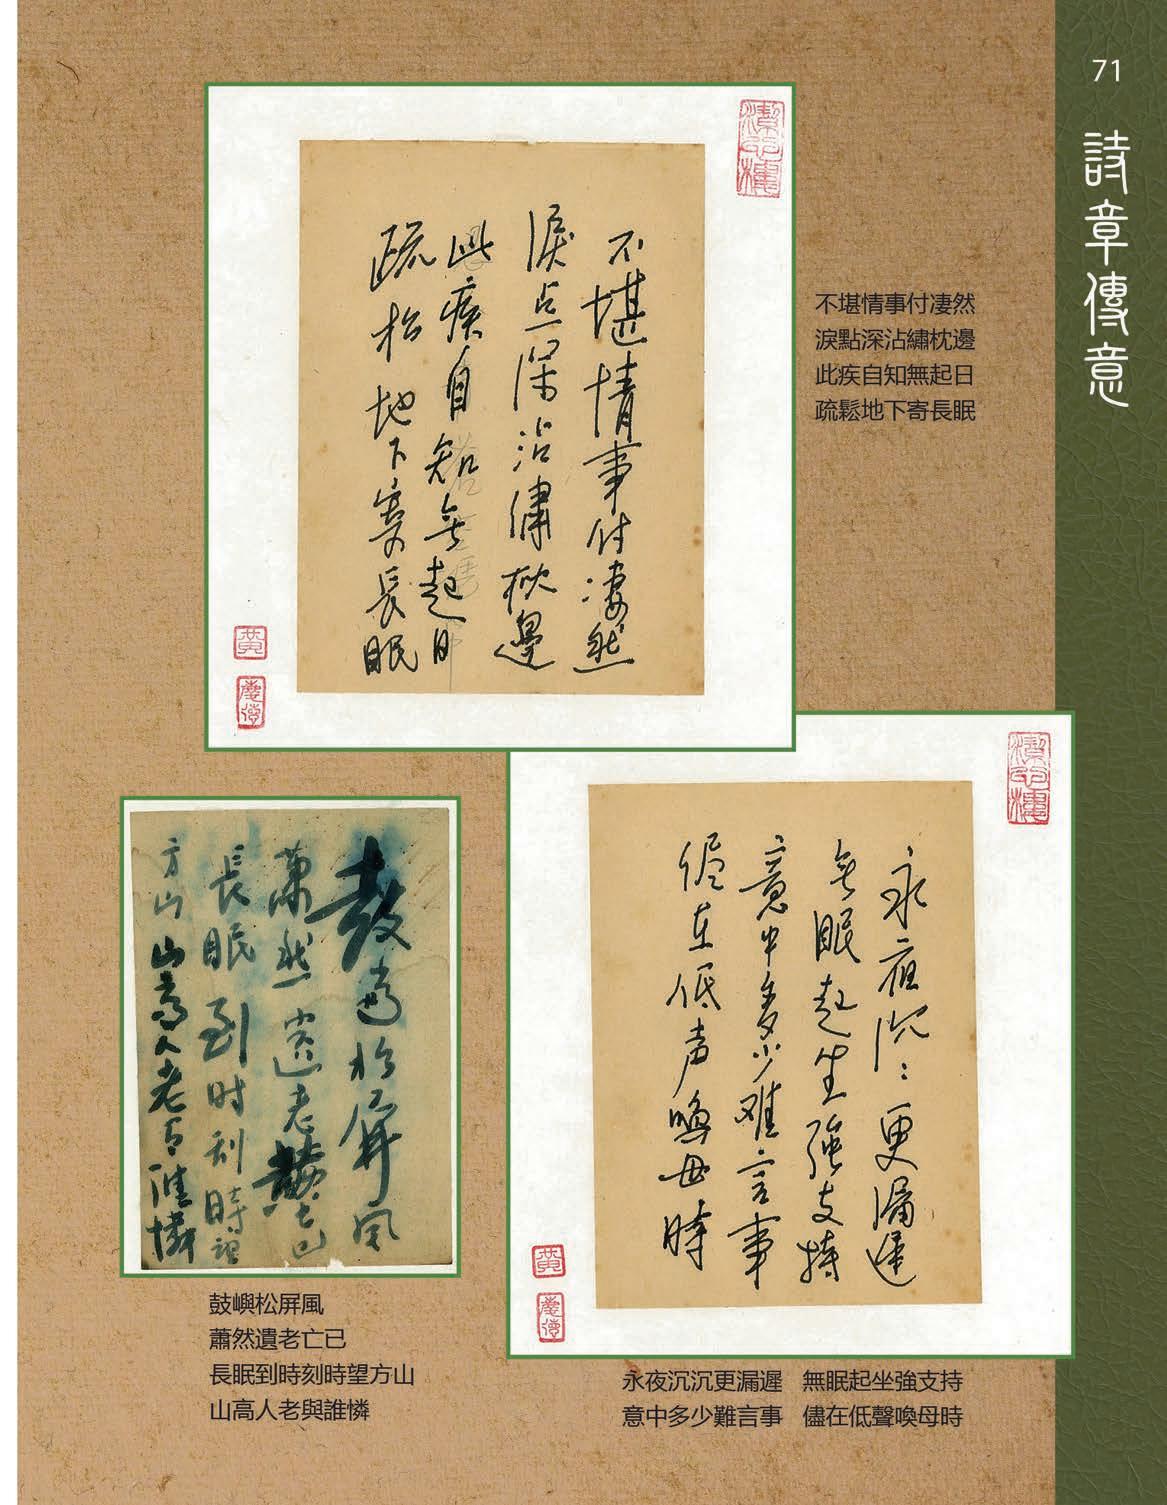 71
詩章傳意
不堪情事付凄然
淚点深沾繡枕邊
此疾自知無起日
疏松地下寄長眠
不堪情事付凄然
淚點深沾繡枕邊
此疾自知無起日
疏鬆地下寄長眠
鼓
松屏風
蕭然遺老
亡已
長眠到时刻時望
方山山高人老与誰憐
鼓嶼松屏風
蕭然遺老亡已
長眠到時刻時望方山
山高人老與誰憐
永夜沉沉更漏遲
無眠起坐強支持
意中多少难言事
儘在低声喚母時
永夜沉沉更漏遲 無眠起坐強支持
意中多少難言事 儘在低聲喚母時
黃
慶德
黃
慶德